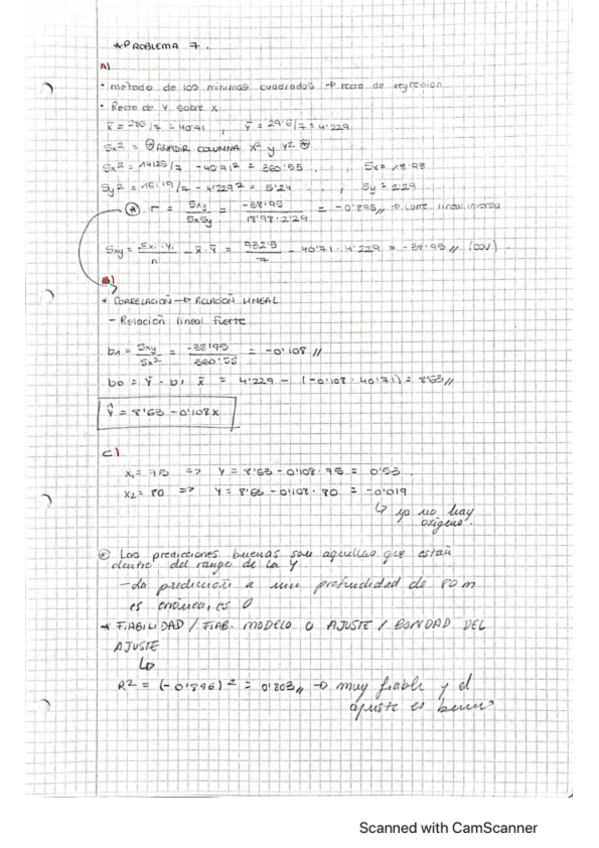 * PROBLEMA 7.
A)
• metodo de los minimos cuadrados → recta de regresion
• Recta de Y sobre X
x̄ = 285/7 = 40'71 , ȳ = 29'6/7 = 4'229
Sx² = * AÑADIR COLUMNA X² y Y² *
Sx² = 14125/7 - 40'71² = 360'55 , Sx = 18'98
Sy² = 161'19/7 - 4'229² = 5'24 , Sy = 2'29
* r = Sxy/SxSy = -38'95/18'98·2'29 = -0'895 // → Corre. lineal inversa
Sxy = Σxi·yi/n - x̄·ȳ = 932'5/7 - 40'71·4'229 = -38'95 // (COV)
B)
* CORRELACIÓN → RELACIÓN LINEAL
- Relación lineal fuerte
b1 = Sxy/Sx² = -38'95/360'55 = -0'108 //
b0 = ȳ - b1 x̄ = 4'229 - (-0'108 · 40'71) = 8'63 //
Ŷ = 8'63 - 0'108x
C)
x1 = 75 => Y = 8'63 - 0'108·75 = 0'53.
x2 = 80 => Y = 8'63 - 0'108·80 = -0'019
↳ ya no hay
oxigeno.
* Las predicciones buenas son aquellas que estan
dentro del rango de la Y.
- La predicción a una profundidad de 80 m
es erónica, es 0
* FIABILIDAD / FIAB. MODELO O AJUSTE / BONDAD DEL
AJUSTE
↳
R² = (-0'896)² = 0'803 // → muy fiable y el
ajuste es bueno
Scanned with CamScanner